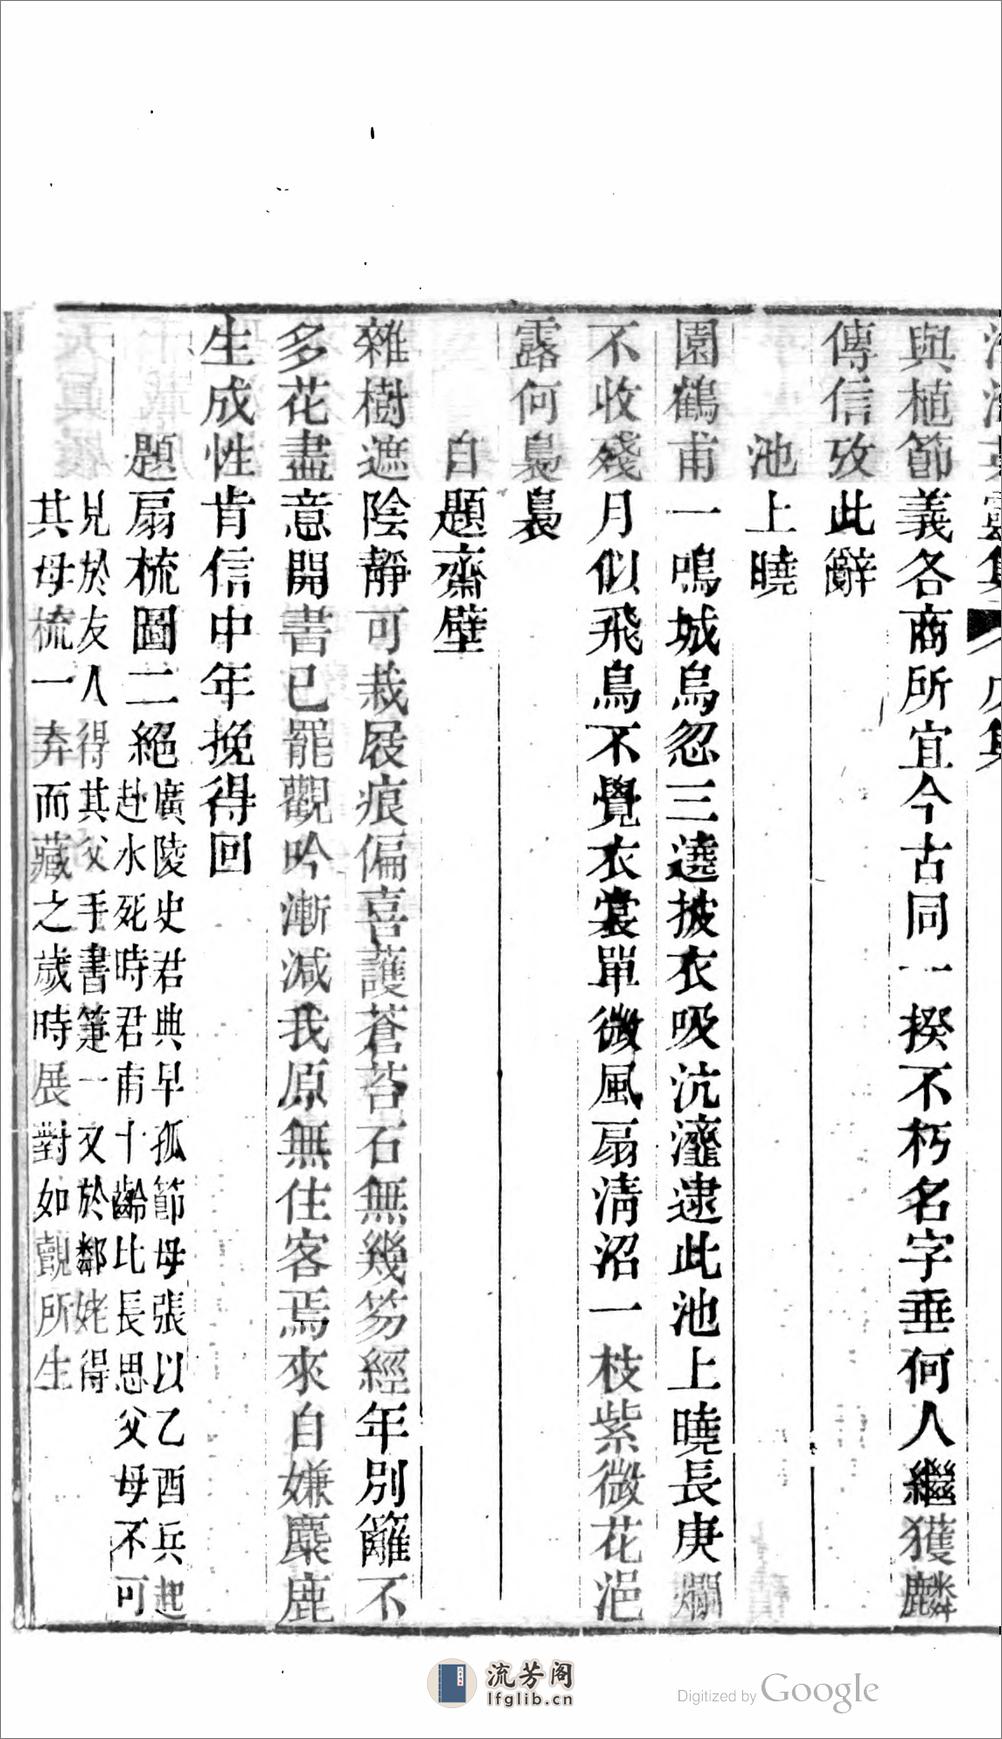 與植節義各商所宜今古同一揆不朽名字垂何人繼獲麟
傳信攷此辭
池上曉
園鶴甫一鳴城烏忽三遶披衣吸沆瀣逮此池上曉長庚爛
不收殘月似飛鳥不覺衣裳單微風扇清沼一枝紫微花浥
露何裊裊
自題齋壁
雜樹遮陰靜可栽屐痕偏喜護蒼苔石無幾笏經年別籬不
多花盡意開書已罷觀吟漸減我原無住客焉來自嫌麋鹿
生成性肯信中年挽得回
題扇梳圖二絕
廣陵史君典早孤節母張以乙酉兵起
赴水死時君甫十齡比長思父母不可
見於友人得其父手書箑一又於鄰姥得
其母梳一弆而藏之歲時展對如覿所生
流芳阁
lfglib.cn
Digitized by Google